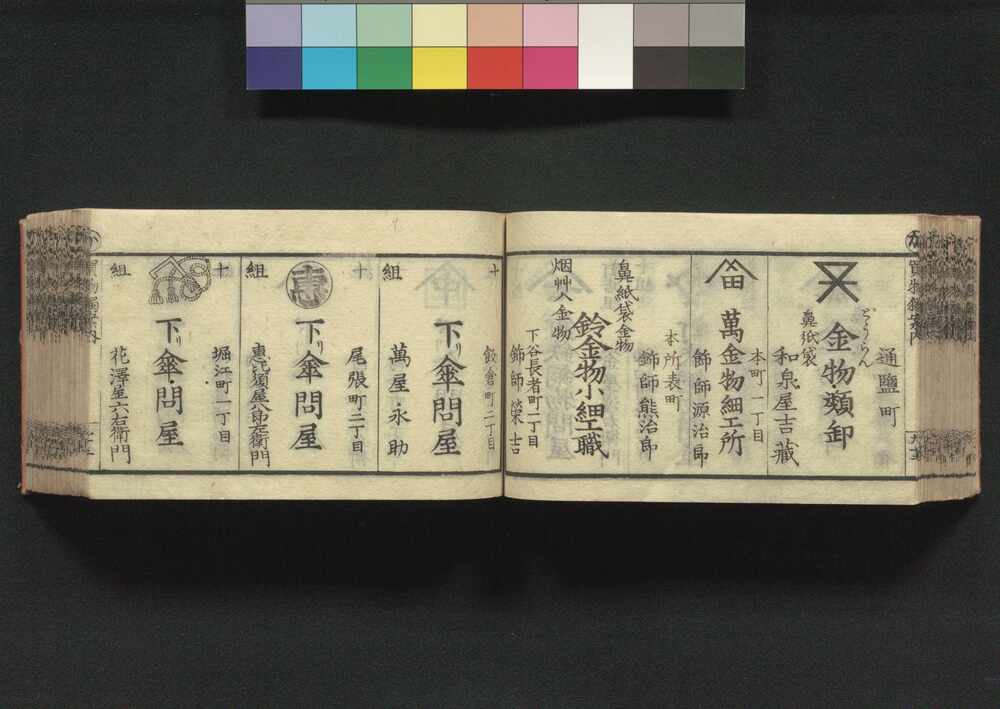 通鹽町
どうらん
金物類卸
鼻紙袋
和泉屋吉藏
本町一丁目
萬金物細工所
餝師源治郎
本所表町
餝師熊治郎
鼻紙袋金物
鈴金物小細工職
烟艸入金物
下谷長者町一丁目
餝師榮吉
十
町二丁目
下り傘問屋
組
萬屋永助
十
尾張町二丁目
恵
下り傘問屋
組
恵比須屋八郎左衛門
十
堀江町一丁目
下り傘問屋
組
花澤屋六右衛門